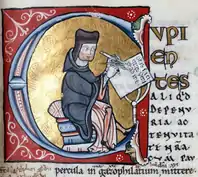 CVPI
EN
TES
ALIQID
DEPENV
RIA AC
TENVITA
TE NRA
CVM PAV
percula in gazophilatium mittere.